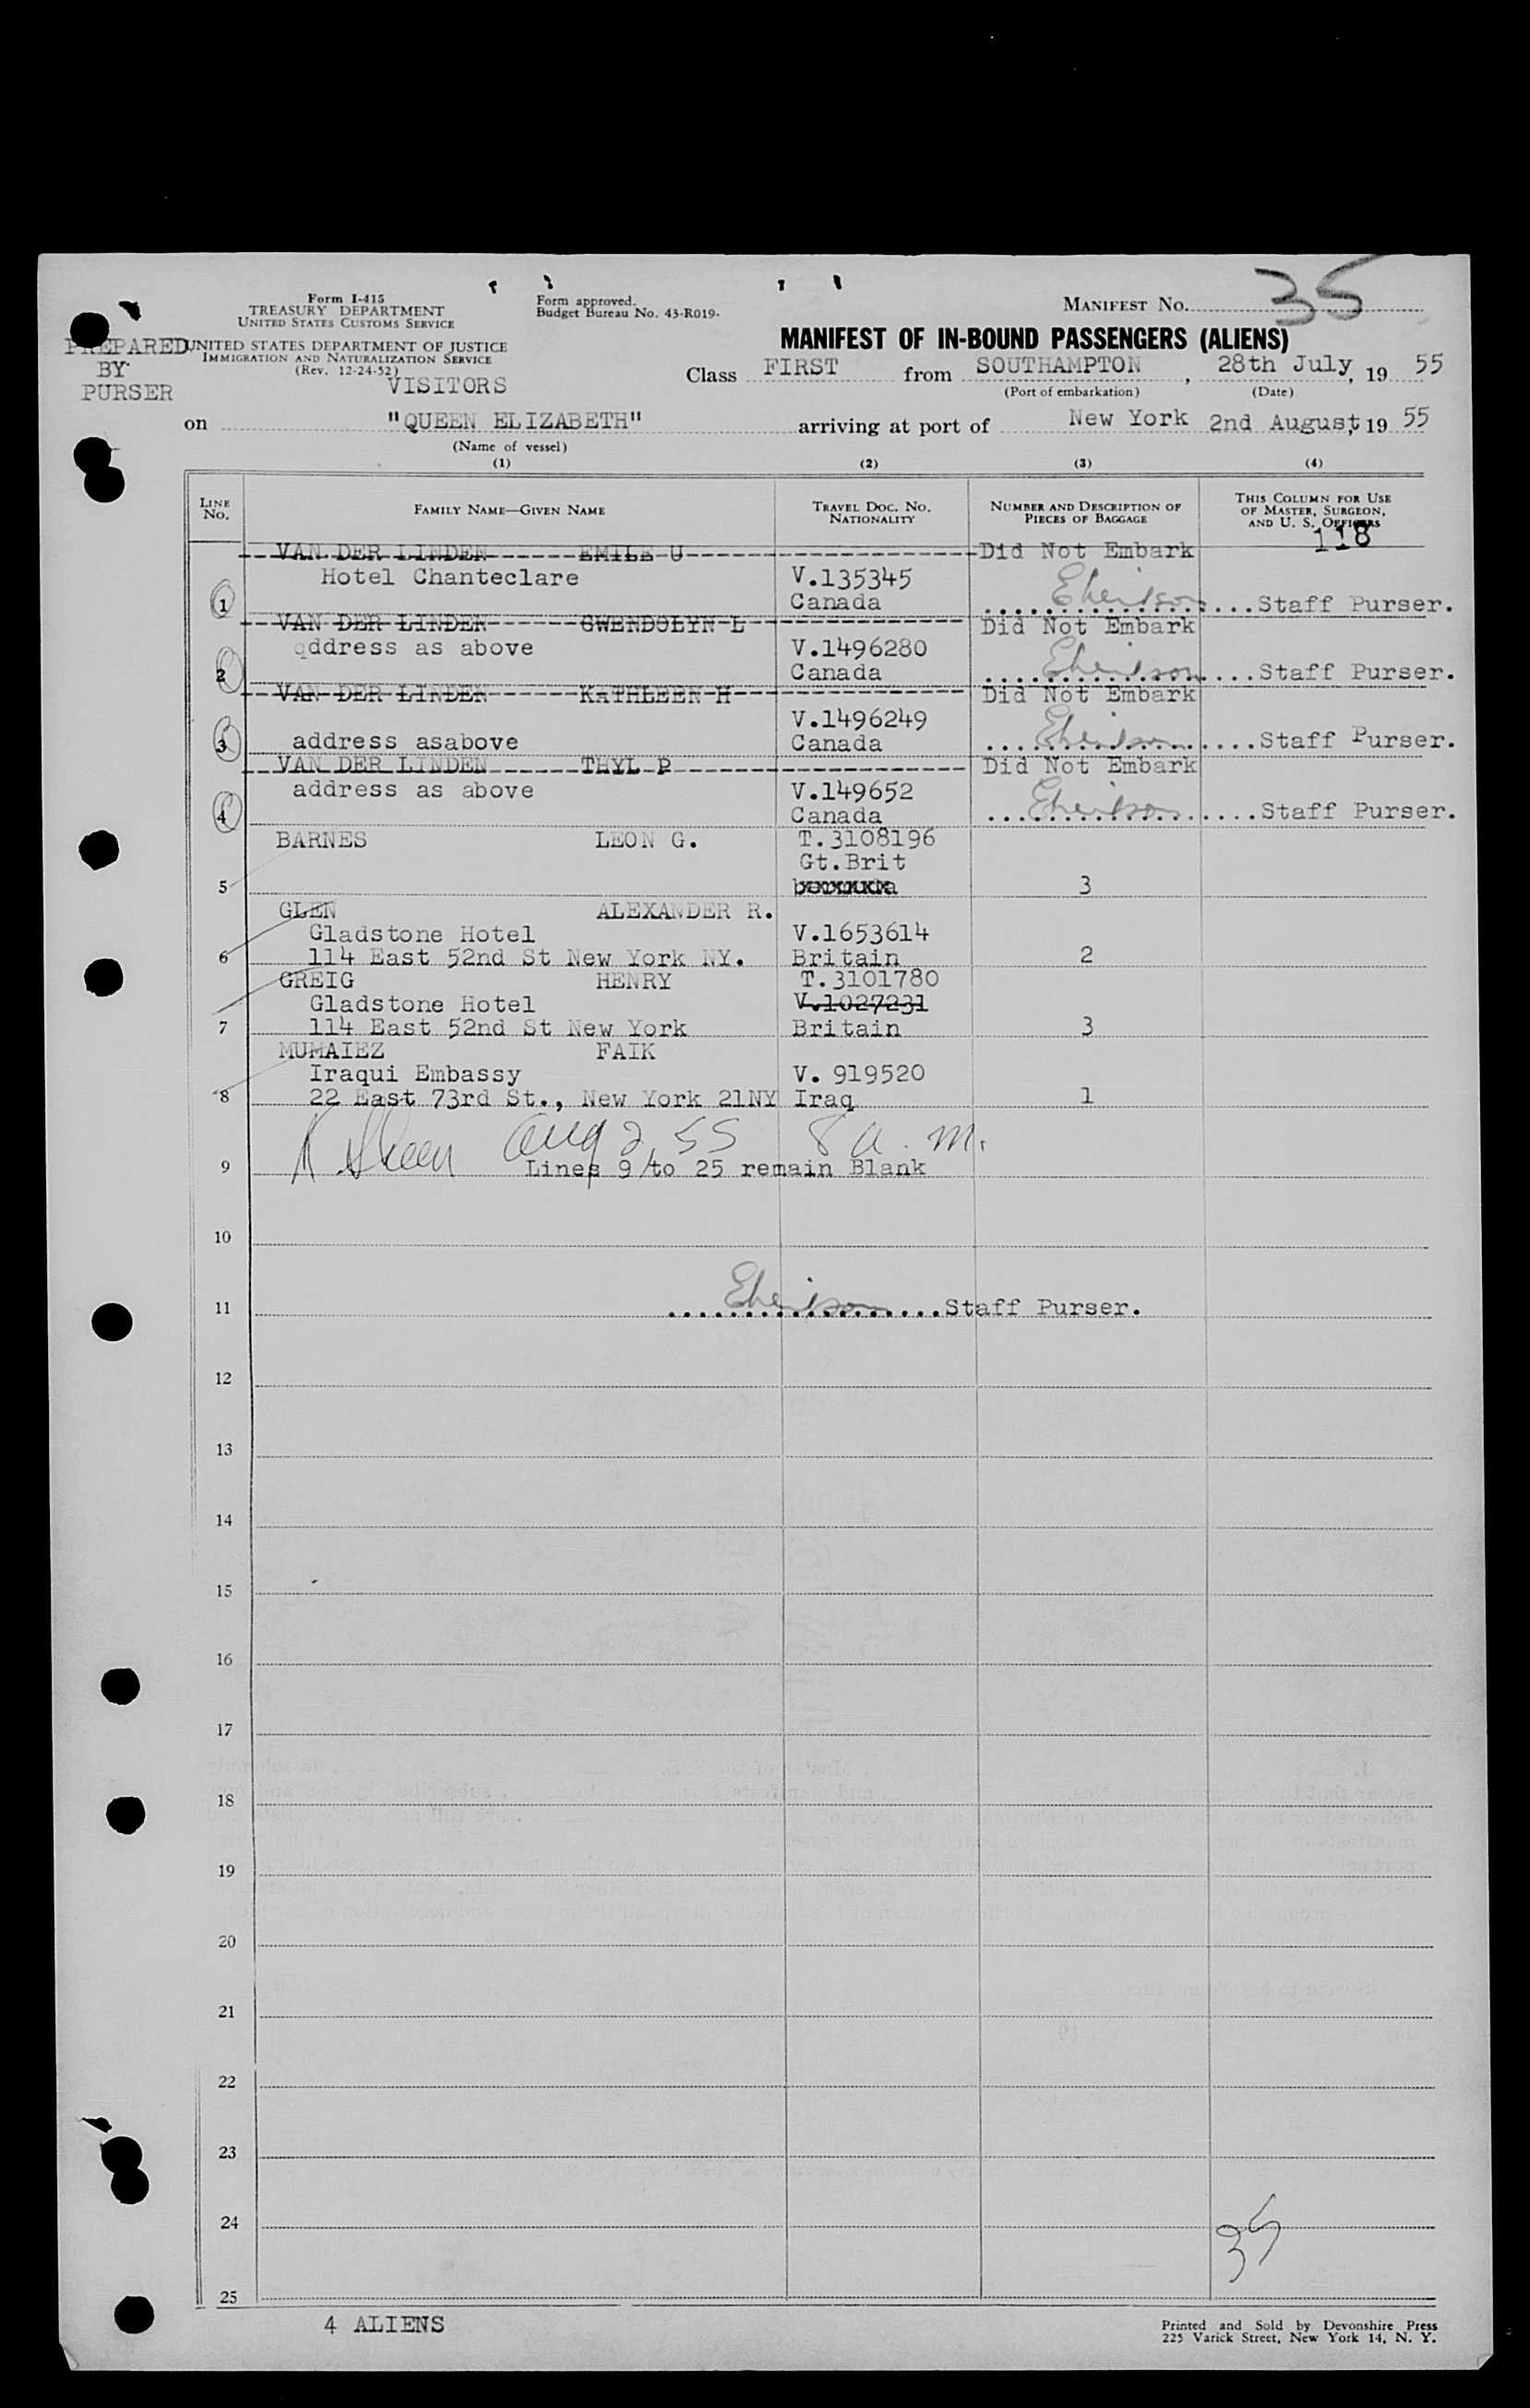 35
Form I-415
TREASURY DEPARTMENT
UNITED STATES CUSTOMS SERVICE
Form approved.
Budget Bureau No. 43-R019-
MANIFEST No.
PREPARED
BY
PURSER
UNITED STATES DEPARTMENT OF JUSTICE
IMMIGRATION AND NATURALIZATION SERVICE
(Rev. 12-24-52)
VISITORS
MANIFEST OF IN-BOUND PASSENGERS (ALIENS)
Class FIRST from SOUTHAMPTON, 28th July, 19 55
(Port of embarkation) (Date)
on "QUEEN ELIZABETH" arriving at port of New York 2nd August, 19 55
(Name of vessel)
(1) (2) (3) (4)
LINE No. FAMILY NAME—GIVEN NAME TRAVEL DOC. No. NATIONALITY NUMBER AND DESCRIPTION OF PIECES OF BAGGAGE THIS COLUMN FOR USE OF MASTER, SURGEON, AND U. S. OFFICERS
118
VAN DER LINDEN EMILE U Did Not Embark
Hotel Chanteclare V.135345
1 Canada Staff Purser.
VAN DER LINDEN GWENDOLYN L Did Not Embark
address as above V.1496280
2 Canada Staff Purser.
VAN DER LINDEN KATHLEEN H Did Not Embark
V.1496249
3 address asabove Canada Staff Purser.
VAN DER LINDEN THYL P Did Not Embark
address as above V.149652
4 Canada Staff Purser.
BARNES LEON G. T.3108196
Gt.Brit
5 3
GLEN ALEXANDER R.
Gladstone Hotel V.1653614
6 114 East 52nd St New York NY. Britain 2
GREIG HENRY T.3101780
Gladstone Hotel V.1027231
7 114 East 52nd St New York Britain 3
MUMAIEZ FAIK
Iraqui Embassy V. 919520
8 22 East 73rd St., New York 21NY Iraq 1
Aug 2 55 8 a.m.
9 Lines 9 to 25 remain Blank
10
11 Staff Purser.
12
13
14
15
16
17
18
19
20
21
22
23
24
35
25
4 ALIENS
Printed and Sold by Devonshire Press
225 Varick Street, New York 14, N. Y.